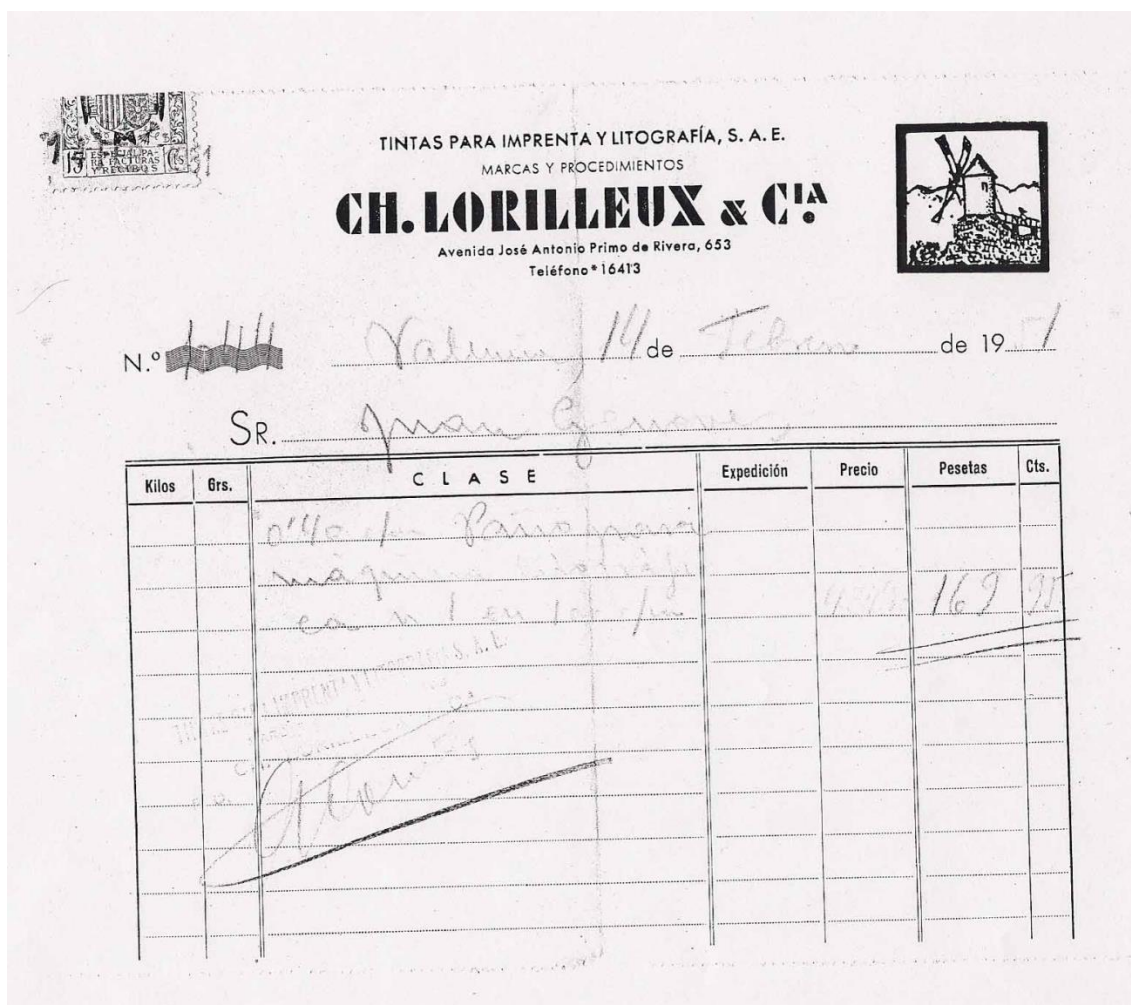 15 ESPECIAL PA-
RA FACTURAS
Y RECIBOS Cts
TINTAS PARA IMPRENTA Y LITOGRAFÍA, S. A. E.
MARCAS Y PROCEDIMIENTOS
CH. LORILLEUX & CIA.
Avenida José Antonio Primo de Rivera, 653
Teléfono * 16413
N.º
Valencia 14 de Febrero de 1951
SR. Juan Genovés
Kilos Grs. CLASE Expedición Precio Pesetas Cts.
0'40 c/m Pano para
máquina litográfi
ca n 1 en 100 c/m 169 95
TINTAS PARA IMPRENTA Y LITOGRAFIA S. A. E.
CH. LORILLEUX